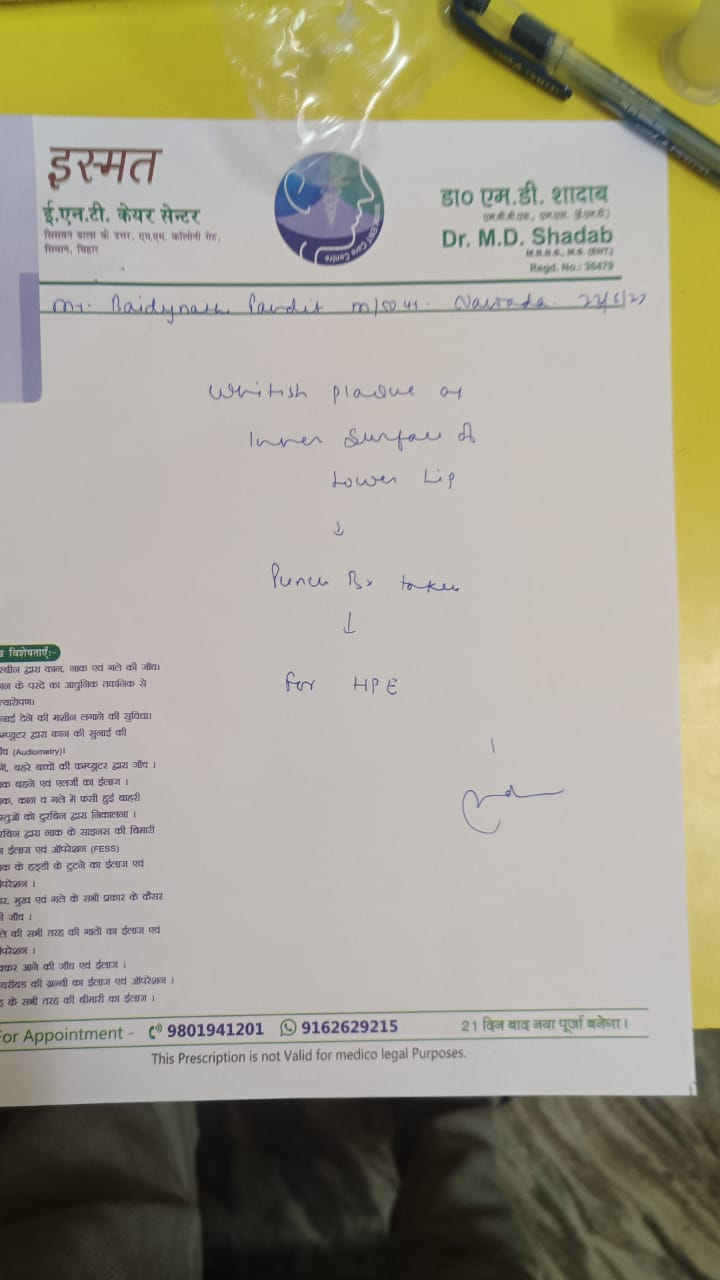 इस्मत
ई.एन.टी. केयर सेन्टर
सिसवन ढाला के उत्तर, एम.एम. कॉलोनी रोड,
सिवान, बिहार
डा० एम.डी. शादाब
एम.बी.बी.एस., एम.एस. (ई.एन.टी.)
Dr. M.D. Shadab
M.B.B.S., M.S. (ENT)
Regd. No.: 36479
ENT Care Centre
Mr. Baidynath Pandit m/50 yr. Nawada
Whitish plaque at
Inner Surface of
Lower Lip
↓
Punch Bx taken
↓
for HPE
विशेषताएँ:-
द्वारा कान, नाक एवं गले की जाँच।
के परदे का आधुनिक तकनिक से
देने की मशीन लगाने की सुविधा।
द्वारा कान की सुनाई की
(Audiometry)।
बहरे बच्चों की कम्प्यूटर द्वारा जाँच ।
बहने एवं एलर्जी का ईलाज ।
कान व गले में फंसी हुई बाहरी
को दुरबिन द्वारा निकालना ।
द्वारा नाक के साइनस की बिमारी
ईलाज एवं ऑपरेशन (FESS)
के हड्डी के टुटने का ईलाज एवं
मुख एवं गले के सभी प्रकार के कैंसर
जाँच ।
की सभी तरह की गाठों का ईलाज एवं
आने की जाँच एवं ईलाज ।
की ग्रन्थी का ईलाज एवं ऑपरेशन ।
के सभी तरह की बीमारी का ईलाज ।
For Appointment - 9801941201 9162629215
21 दिन बाद नया पूर्जा बनेगा।
This Prescription is not Valid for medico legal Purposes.